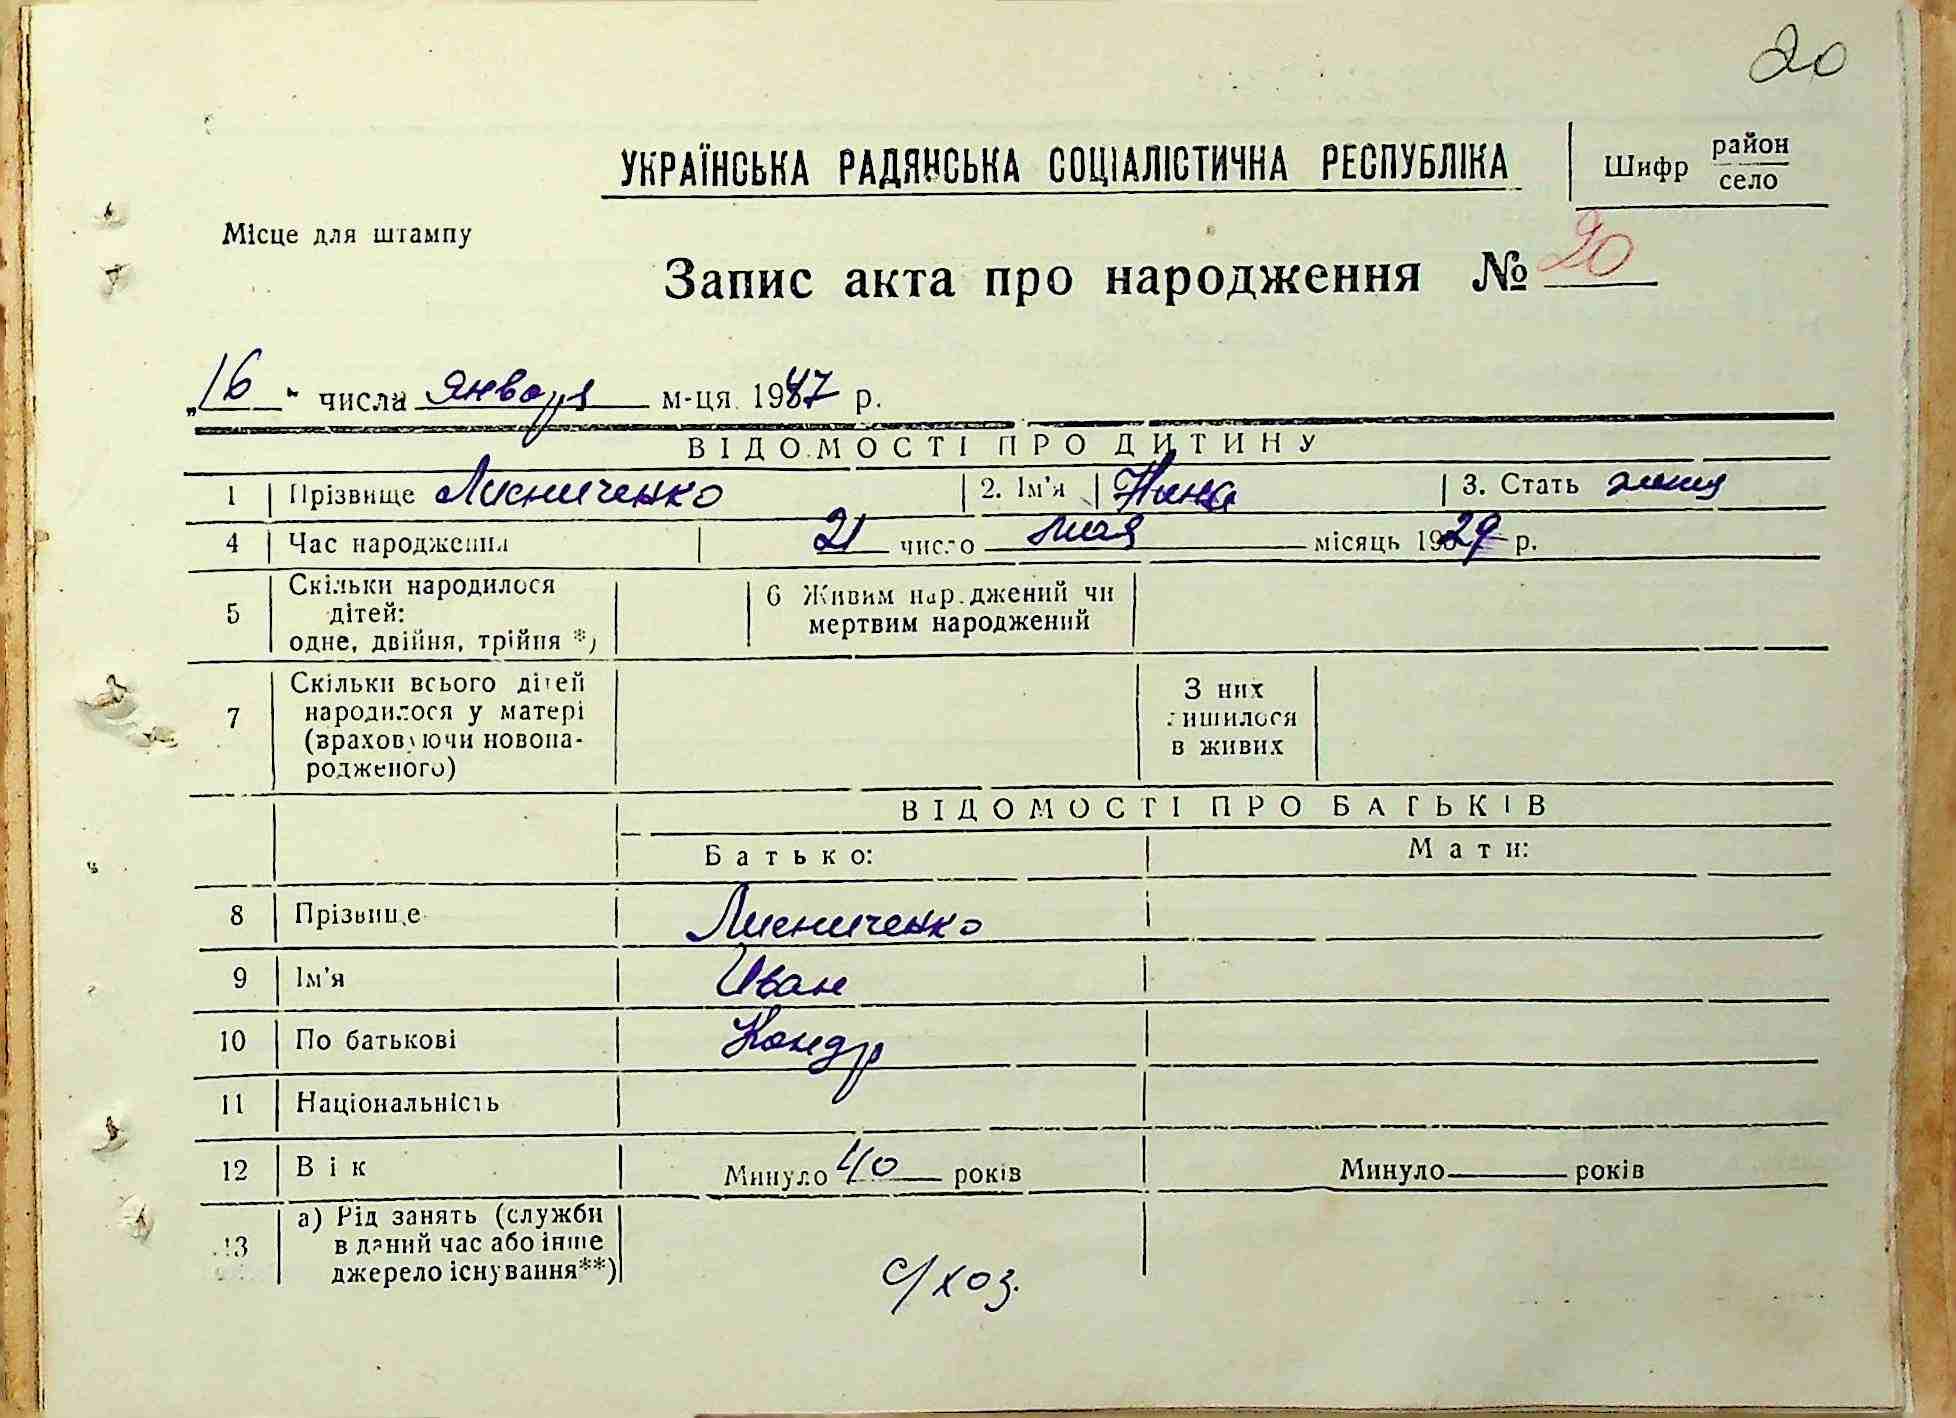 20
УКРАЇНСЬКА РАДЯНСЬКА СОЦІАЛІСТИЧНА РЕСПУБЛІКА
Шифр район
село
Місце для штампу
Запис акта про народження № 20
„16" числа января м-ця 1947 р.
ВІДОМОСТІ ПРО ДИТИНУ
1 Прізвище Лисниченко 2. Ім'я Нина 3. Стать
4 Час народження 21 число мая місяць 1929 р.
5 Скільки народилося дітей: одне, двійня, трійня *) 6 Живим народжений чи мертвим народжений
7 Скільки всього дітей народилося у матері (враховуючи новонародженого) З них лишилося в живих
ВІДОМОСТІ ПРО БАТЬКІВ
Батько: Мати:
8 Прізвище Лисниченко
9 Ім'я Иван
10 По батькові Кондр
11 Національність
12 Вік Минуло 40 років Минуло років
13 а) Рід занять (служби в даний час або інше джерело існування**)
с/хоз.